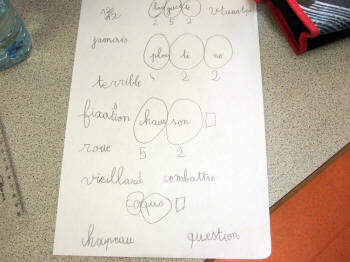 2 5 2
jamais
plu ti no
2 2
terrible
fixation
chau son
roue
5 2
vieillard combattre
coque
chapeau question